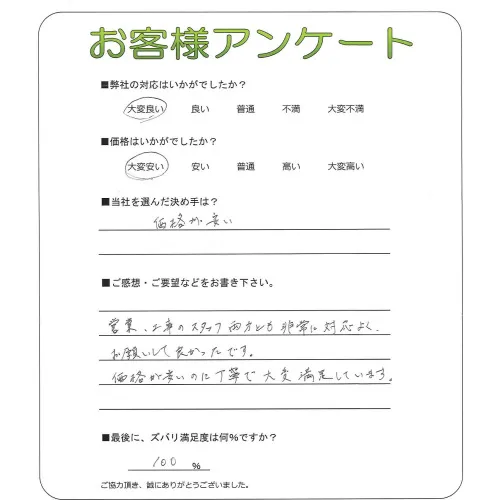 お客様アンケート
■弊社の対応はいかがでしたか？
大変良い 良い 普通 不満 大変不満
■価格はいかがでしたか？
大変安い 安い 普通 高い 大変高い
■当社を選んだ決め手は？
価格が安い
■ご感想・ご要望などをお書き下さい。
営業、工事のスタッフ両方とも非常に対応よく、
お願いして良かったです。
価格が安いのに丁寧で大変満足しています。
■最後に、ズバリ満足度は何%ですか？
100 %
ご協力頂き、誠にありがとうございました。